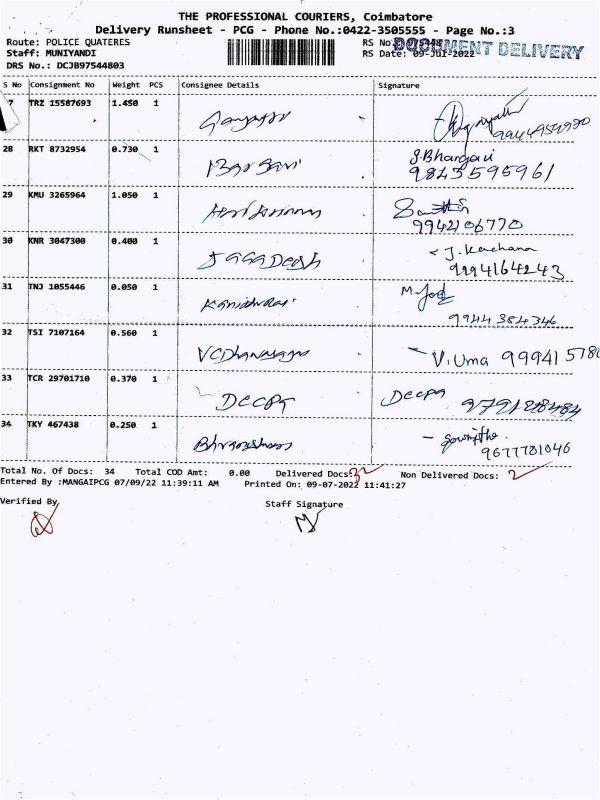 THE PROFESSIONAL COURIERS, Coimbatore
Delivery Runsheet - PCG - Phone No.:0422-3505555 - Page No.:3
Route: POLICE QUATERES RS No.: DOCUMENT DELIVERY
Staff: MUNIYANDI RS Date: 09-Jul-2022
DRS No.: DCJB97544803
S No Consignment No Weight PCS Consignee Details Signature
7 TRZ 15587693 1.450 1
28 RKT 8732954 0.730 1 Bargavi S.Bhargavi
9843595961
29 KMU 3265964 1.050 1
9942106770
30 KNR 3047300 0.400 1 JAGADEESH J. Kanchana
9994164243
31 TNJ 1055446 0.050 1
9944384346
32 TSI 7107164 0.560 1 V. Uma 999415780
33 TCR 29701710 0.370 1 Deepa Deepa 9791288484
34 TKY 467438 0.250 1
9677781046
Total No. Of Docs: 34 Total COD Amt: 0.00 Delivered Docs: 32 Non Delivered Docs: 2
Entered By :MANGAIPCG 07/09/22 11:39:11 AM Printed On: 09-07-2022 11:41:27
Verified By Staff Signature